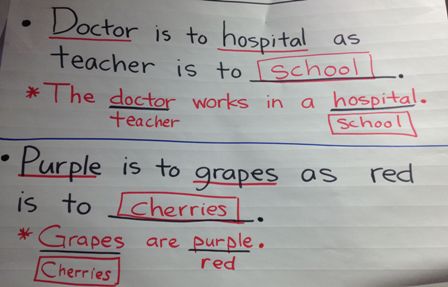 • Doctor is to hospital as
teacher is to school.
* The doctor works in a hospital.
teacher school
• Purple is to grapes as red
is to Cherries.
* Grapes are purple.
Cherries red